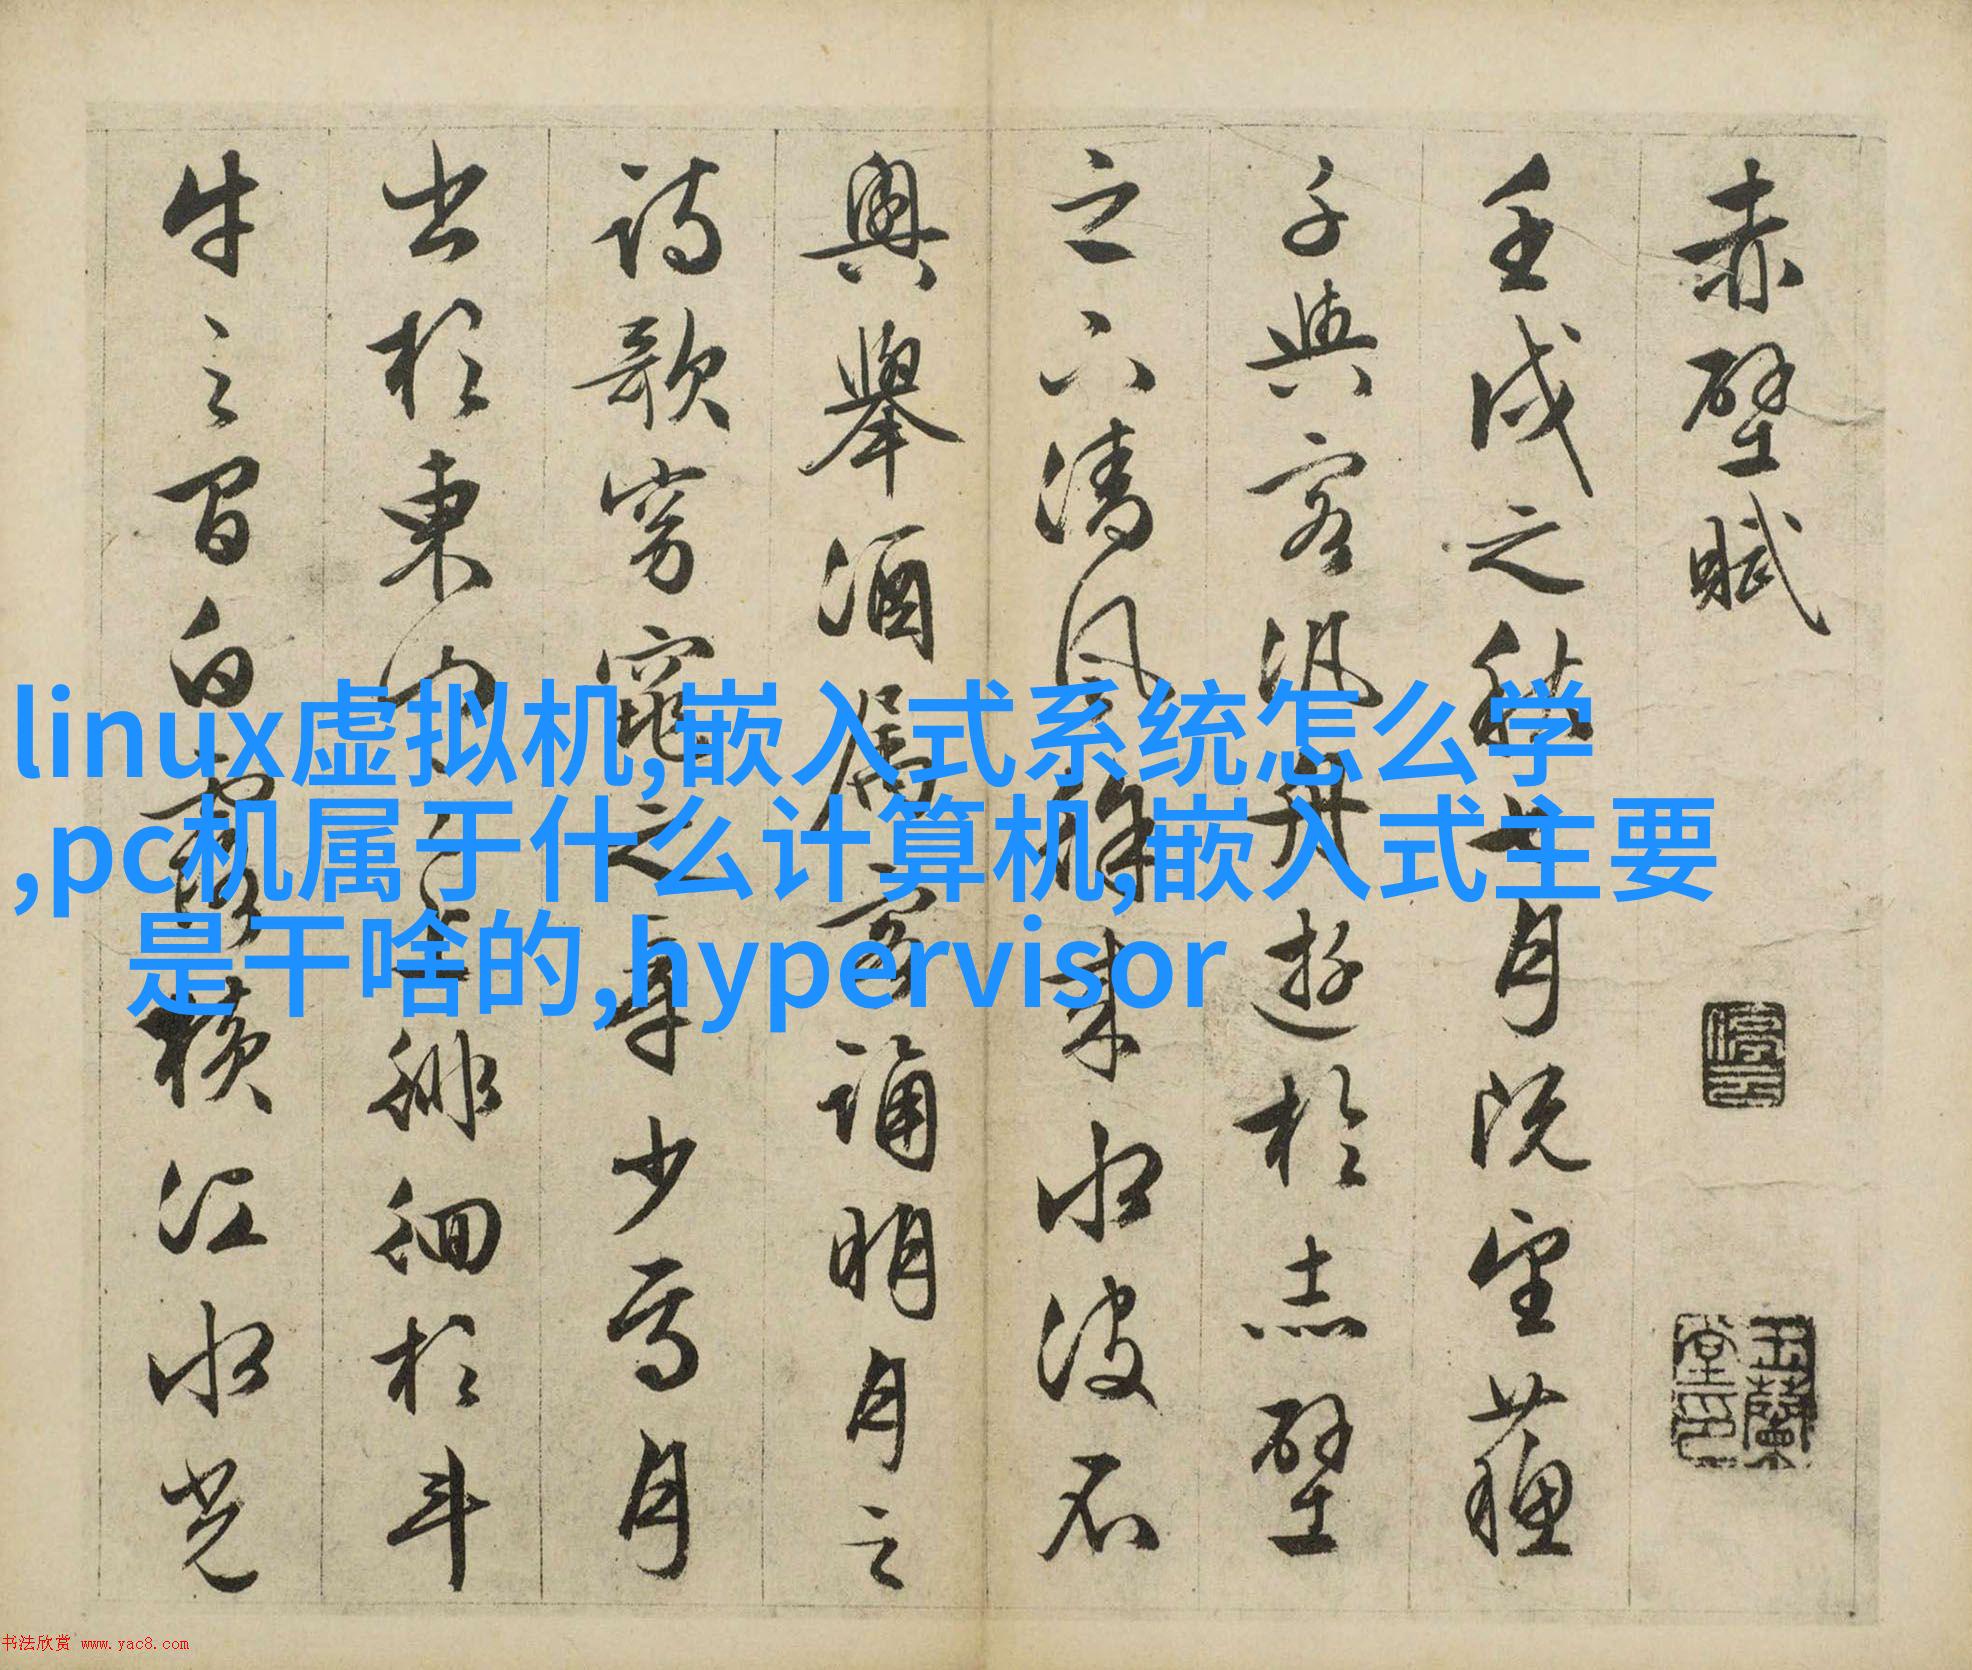 赤壁賦
壬戌之秋七月既望蘓
子與客汎舟遊於赤壁
之下清風徐来水波不
興舉酒屬客誦明月之
詩歌窈窕之章少焉月
出於東山之上徘徊於斗
牛之間白露横江水光
停雲
玉蘭堂印
linux虚拟机,嵌入式系统怎么学
,pc机属于什么计算机,嵌入式主要
是干啥的,hypervisor
书法欣赏 www.yac8.com